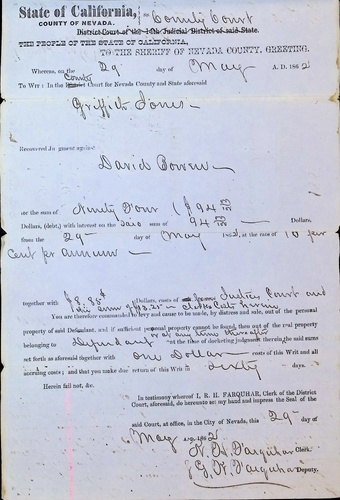 State of California,
COUNTY OF NEVADA.
ss County Court
District Court of the 14th Judicial District of said State.
THE PEOPLE OF THE STATE OF CALIFORNIA,
TO THE SHERIFF OF NEVADA COUNTY, GREETING.
Whereas, on the 29 day of May A. D. 1862
County
To Wit: In the District Court for Nevada County and State aforesaid
Griffith Jones
Recovered Judgment against
David Bowen
for the sum of Ninety Four ($94
Dollars, (debt,) with interest on the said sum of 94 Dollars.
from the 29 day of May 1862, at the rate of 10 per
Cent per annum
together with $8.85 Dollars, costs of Justice Court and
the sum of $3.25 in clerks Costs herein
You are therefore commanded to levy and cause to be made, by distress and sale, out of the personal
property of said Defendant, and if sufficient personal property cannot be found, then out of the real property
or at any time thereafter
belonging to Defendant at the time of docketing judgment therein, the said sums
set forth as aforesaid together with One Dollar costs of this Writ and all
accruing costs; and that you make due return of this Writ in Sixty days.
Herein fail not, &c.
In testimony whereof I, R. H. FARQUHAR, Clerk of the District
Court, aforesaid, do hereunto set my hand and impress the Seal of the
said Court, at office, in the City of Nevada, this 29 day of
May A. D. 1862
R. H. Farquhar Clerk.
G. K. Farquhar Deputy.